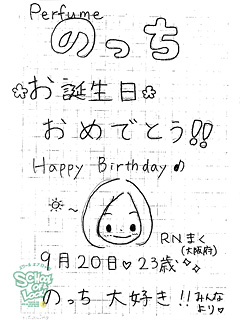 Perfume
のっち
お誕生日
おめでとう!!
Happy Birthday♪
RN きく
(大阪府)
9月20日♡23歳
のっち 大好き!!みんなより♡
SCHOOL OF LOCK!